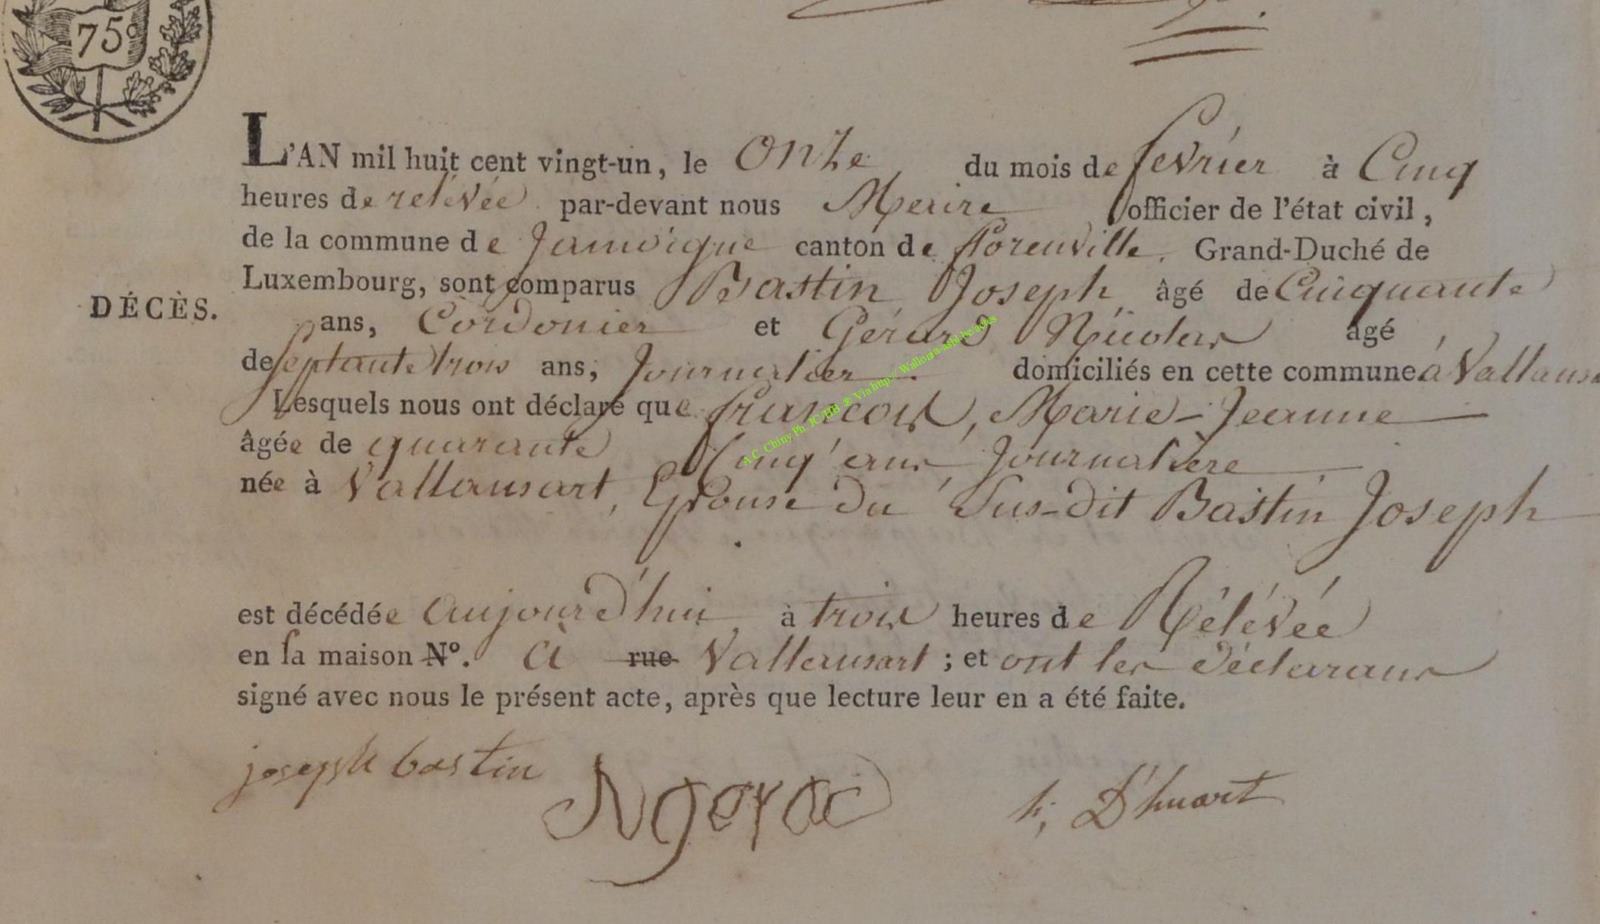 75c
L'AN mil huit cent vingt-un, le Onze du mois de fevrier à Cinq
heures de relévée par-devant nous Meaire officier de l'état civil,
de la commune de Jamoigne canton de florenville, Grand-Duché de
Luxembourg, sont comparus Bastin Joseph âgé de Cinquante
DÉCÈS.
ans, Cordonier et Gérard Nicolas agé
de septante trois ans, Journalier domiciliés en cette commune à Vallansa
Lesquels nous ont déclaré que françois, Marie-Jeanne
âgée de quarante Cinq ans Journalière
née à Vallansart, Epouse du Sus-dit Bastin Joseph
est décédée aujourd'hui à trois heures de Rélévée
en sa maison N°. à rue Vallansart ; et ont les déclarans
signé avec nous le présent acte, après que lecture leur en a été faite.
joseph bastin
h, D'huart